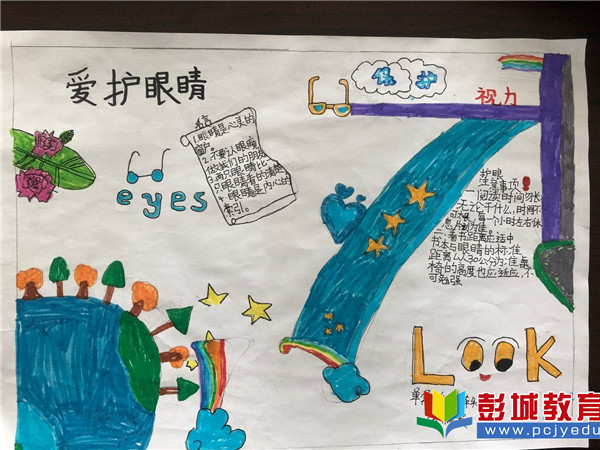 爱护眼睛
保护
视力
eyes
名言
1.眼睛是心灵的
窗户。
2.不要认眼瞳
做我们的朋友
3.两只眼睛比一
只眼睛看的清楚
4.眼睛是内心的
索引。
护眼
注意事项
一.阅读时间勿长
无论干什么,时间不
可
每一个小时左右休
息片刻为准。
二.看书距离应适中
书本与眼睛的标准
距离以人30公分为准,桌
椅的高度也应适应,不
可勉强
LOOK
彭城教育
www.pcjyedu